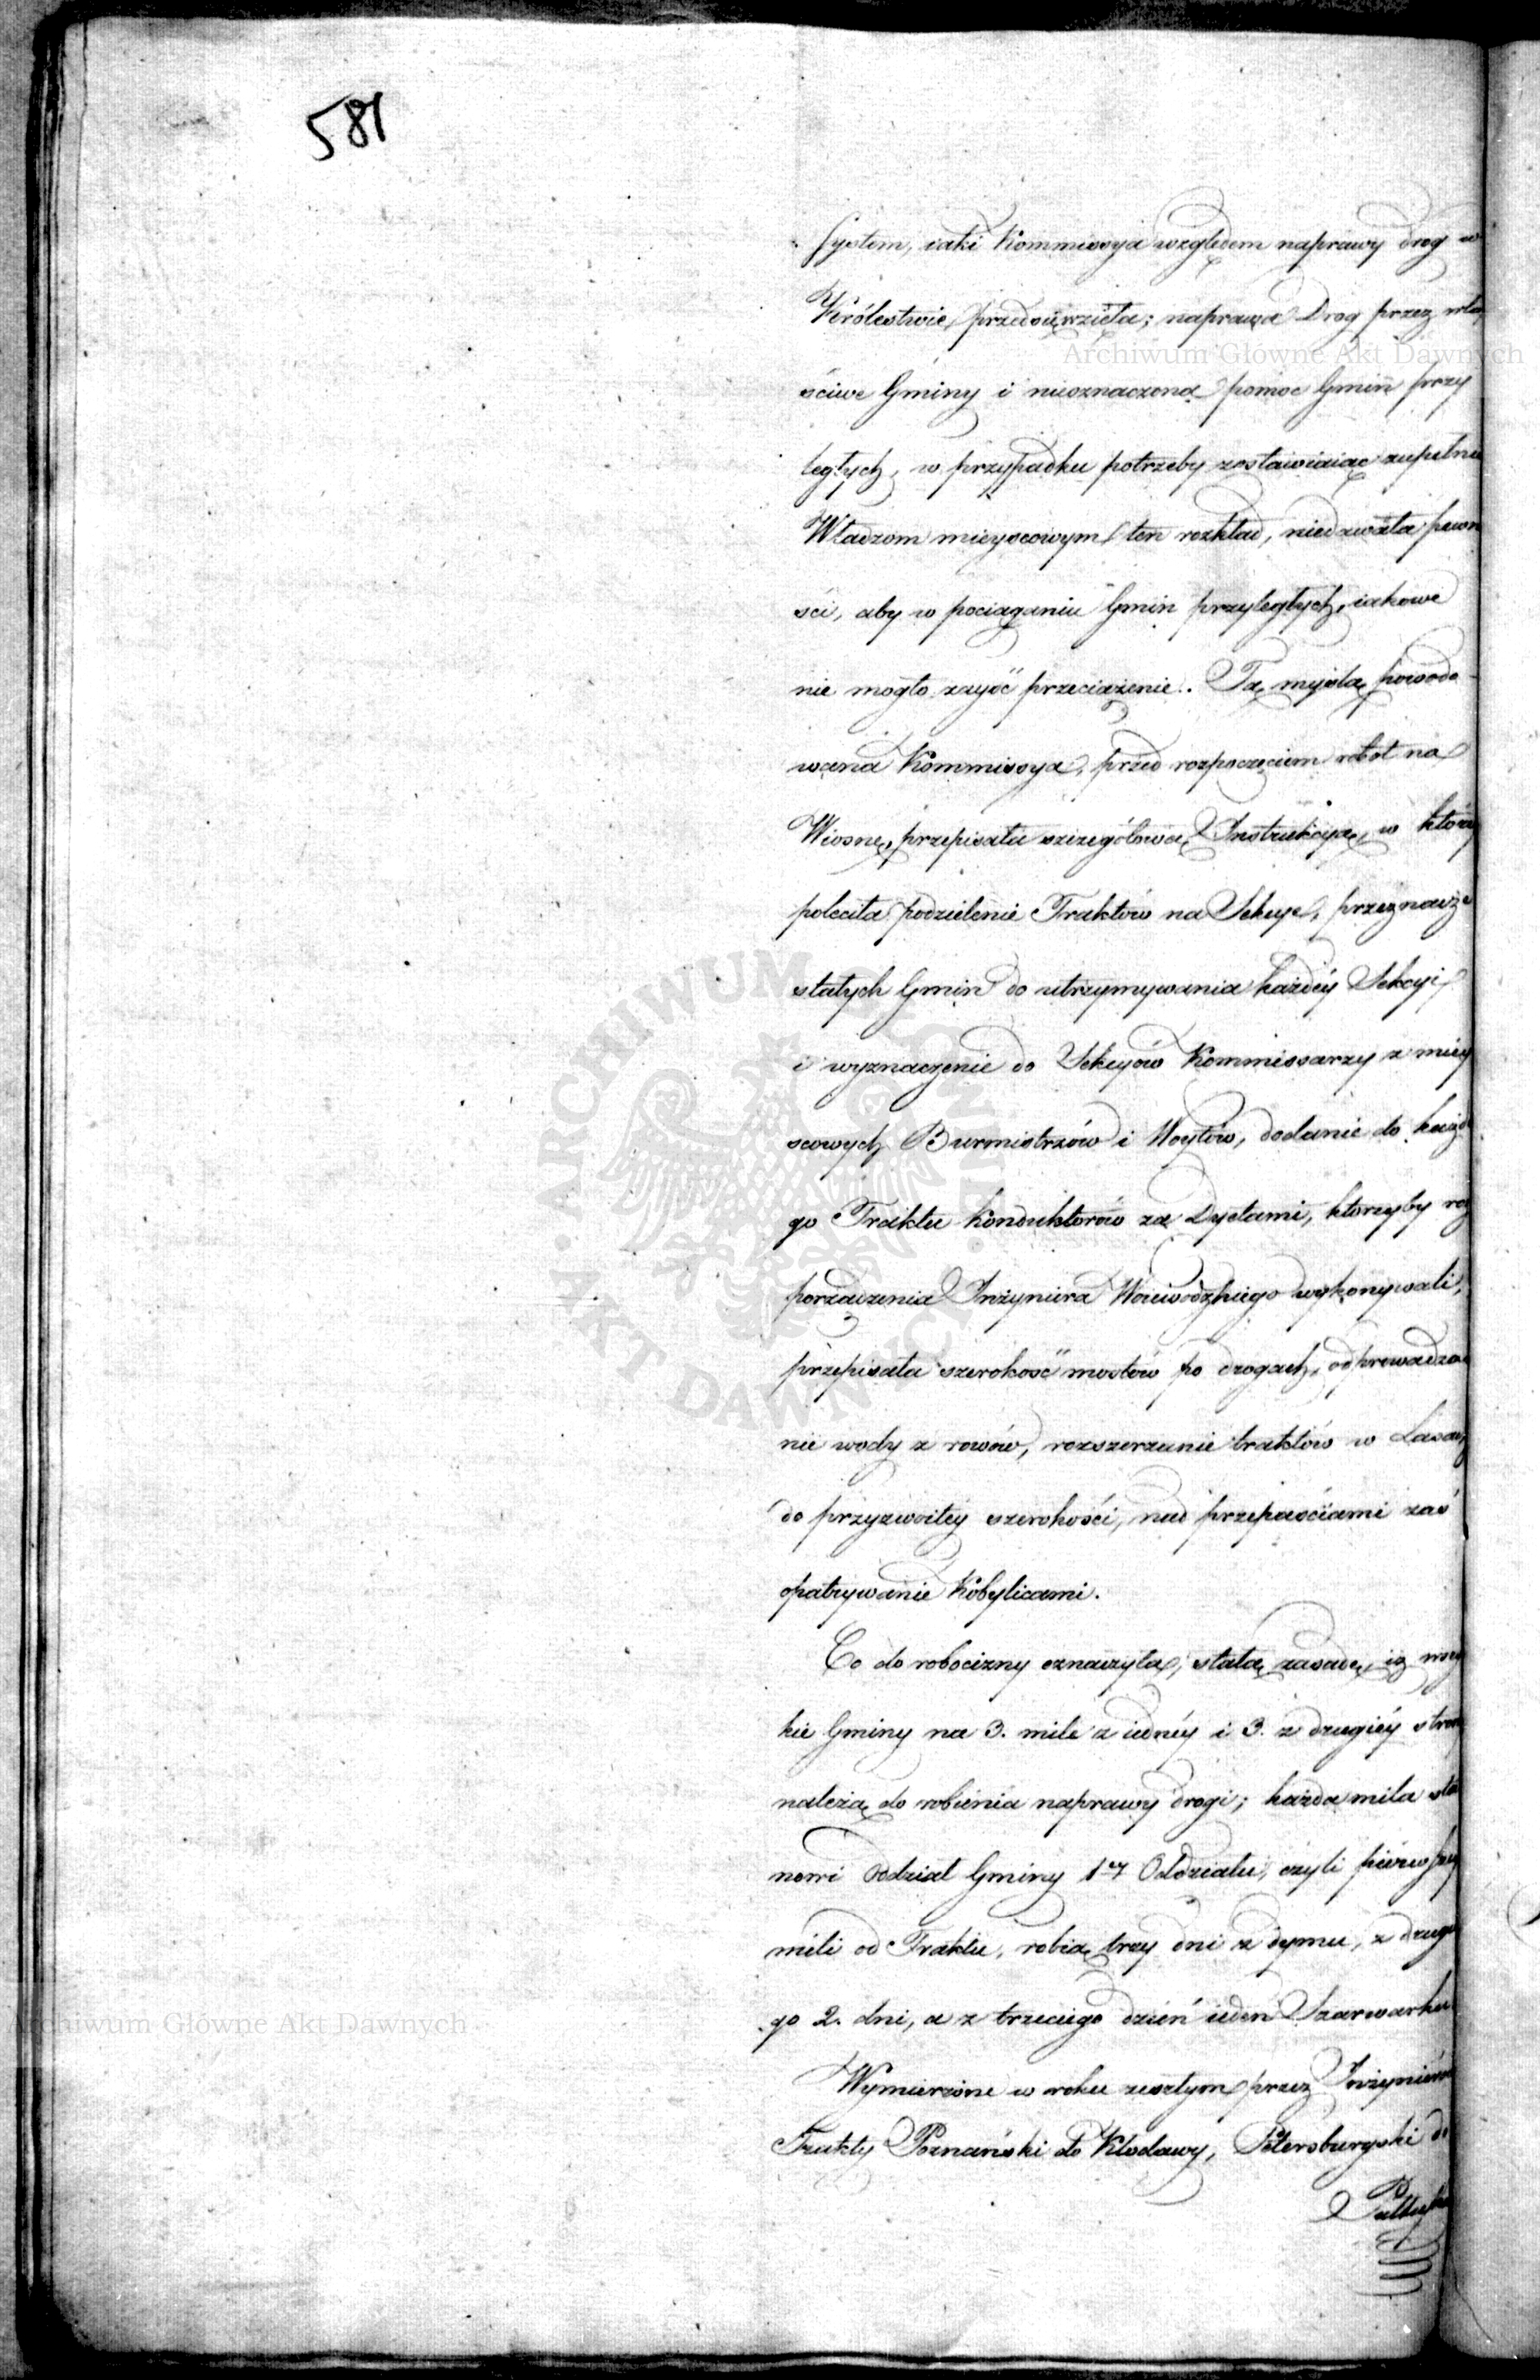 581
System, iaki Kommissya względem naprawy drog w
Królestwie, przedsięwzięła; naprawa Drog przez wła
ściwe Gminy i nieoznaczona pomoc Gmin przy
ległych, w przypadku potrzeby zostawiaiąc zupełnie
Władzom mieyscowym ten rozkład, niedawała pewno
ści, aby w pociąganiu Gmin przyległych, iakowe
nie mogło zayść przeciążenie. Tą myślą powodo
wana Kommissya, przed rozpoczęciem robot na
Wiosnę, przepisała szczegółową Instrukcyą, w którey
poleciła podzielenie Traktów na Sekcye, przeznacze
stałych Gmin do utrzymywania każdéy Sekcyi
i wyznaczenie do Sekcyów Kommissarzy z miey
scowych Burmistrzów i Woytów, dodanie do każde
go Traktu Konduktorów za Dyetami, którzyby roz
porządzenia Inżyniera Woiewodzkiego wykonywali,
przepisała szerokość mostów po drogach, odprowadza
nie wody z rowów, rozszerzanie traktów w Lasach
do przyzwoitey szerokości, nad przepaściami zaś
opatrywanie Kobylicami.
Co do robocizny oznaczyła, stałą zasadę, iż wszy
kie Gminy na 3. mile z iednéy i 3. z drugiéy strony
należą do robienia naprawy drogi; każda mila sta
nowi oddział Gminy 1ey Oddziału, czyli pierwszey
mili od Traktu, robią trzy dni z dymu, z drugie
go 2. dni, a z trzeciego dzień ieden Szarwarku
Wymierzone w roku zeszłym przez Inżynierów
Trakty Poznański do Kłodawy, Petersburgski do
Pułtuska
Archiwum Główne Akt Dawnych
Archiwum Główne Akt Dawnych
ARCHIWUM GŁÓWNE AKT DAWNYCH